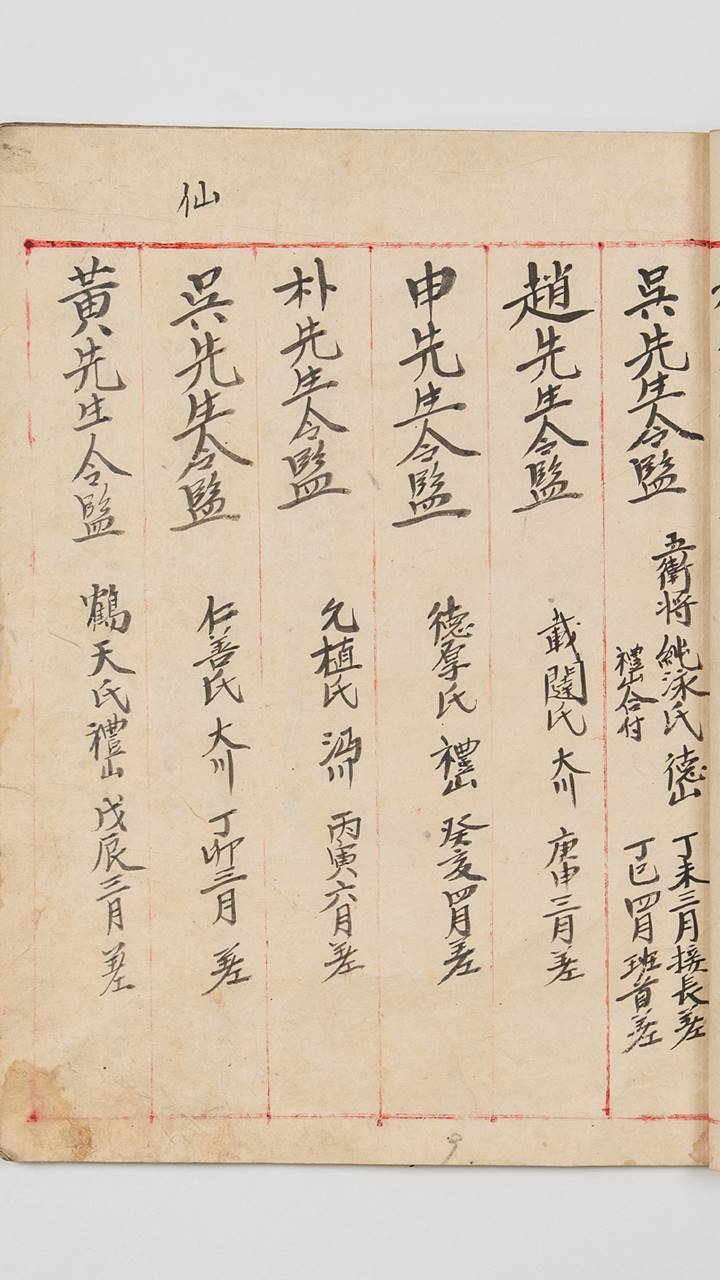 仙
吳先生令監 五衛將 純泳氏 德山 丁未三月接長差
禮山合付 丁巳四月班首差
趙先生令監 載閏氏 大川 庚申三月差
申先生令監 德厚氏 禮山 癸亥四月差
朴先生令監 允植氏 沔川 丙寅六月差
吳先生令監 仁善氏 大川 丁卯三月差
黃先生令監 鶴天氏 禮山 戊辰三月差
9